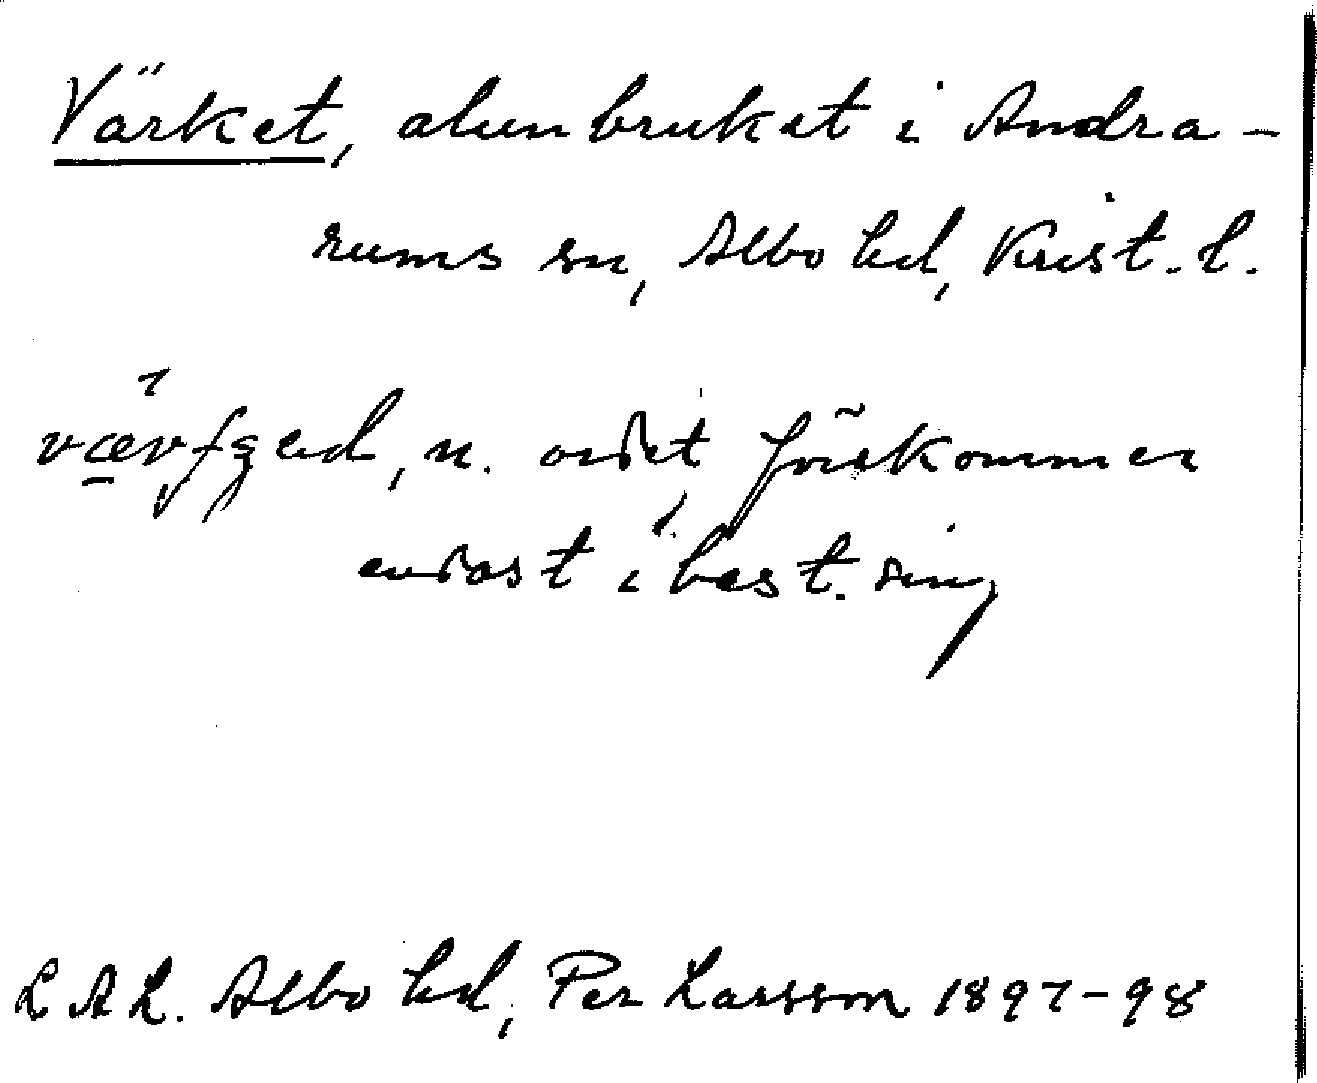 Värket, alunbruket i Andra-
rums sn, Albo hd, Krist. l.
n. ordet förekommer
endast i best. sing
L A L. Albo hd, Per Larsson 1897-98